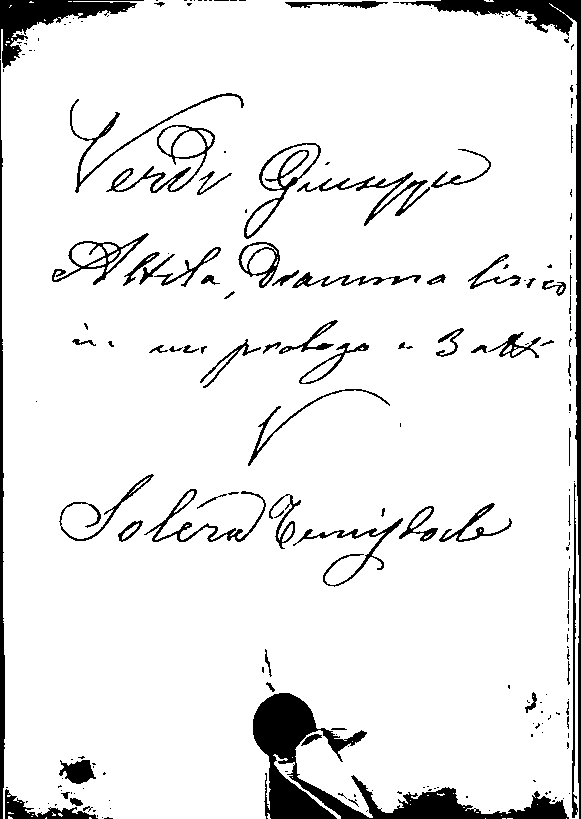 Verdi Giuseppe
Attila, Dramma lirico
in un prologo e 3 atti
V
Solera Temistocle